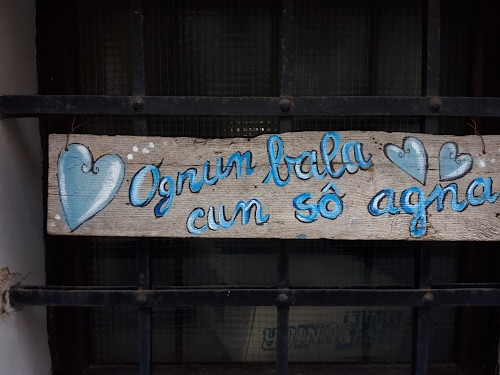 Ognun bala
cun sô agna